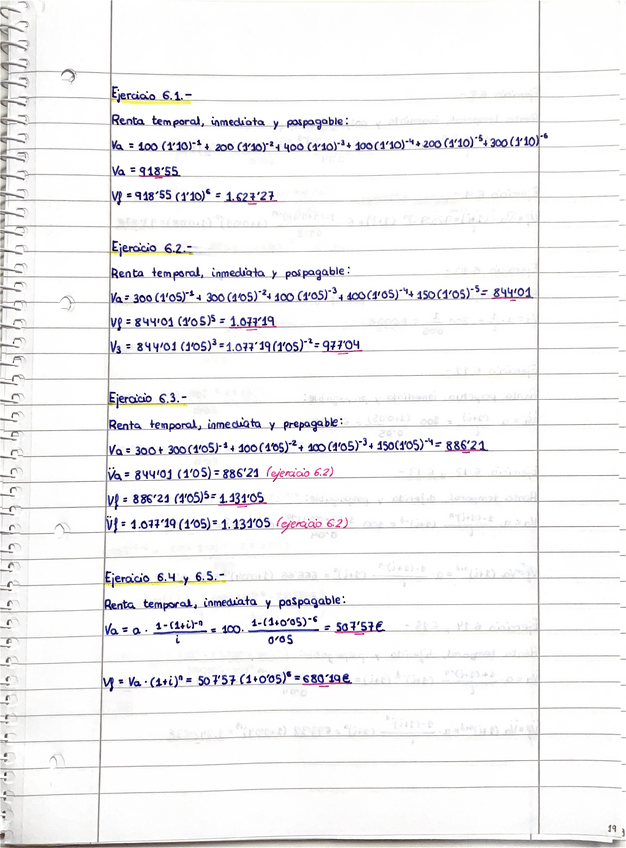 Ejercicio 6.1.-
Renta temporal, inmediata y pospagable:
Va = 100 (1'10)⁻¹ + 200 (1'10)⁻² + 400 (1'10)⁻³ + 100 (1'10)⁻⁴ + 200 (1'10)⁻⁵ + 300 (1'10)⁻⁶
Va = 918'55
Vf = 918'55 (1'10)⁶ = 1.627'27
Ejercicio 6.2.-
Renta temporal, inmediata y pospagable:
Va = 300 (1'05)⁻¹ + 300 (1'05)⁻² + 100 (1'05)⁻³ + 100 (1'05)⁻⁴ + 150 (1'05)⁻⁵ = 844'01
Vf = 844'01 (1'05)⁵ = 1.077'19
V₃ = 844'01 (1'05)³ = 1.077'19 (1'05)⁻² = 977'04
Ejercicio 6.3.-
Renta temporal, inmediata y prepagable:
Va = 300 + 300 (1'05)⁻¹ + 100 (1'05)⁻² + 100 (1'05)⁻³ + 150 (1'05)⁻⁴ = 886'21
V̈a = 844'01 (1'05) = 886'21 (ejercicio 6.2)
Vf = 886'21 (1'05)⁵ = 1.131'05
V̈f = 1.077'19 (1'05) = 1.131'05 (ejercicio 6.2)
Ejercicio 6.4 y 6.5.-
Renta temporal, inmediata y pospagable:
Va = a · 1-(1+i)⁻ⁿ / i = 100 · 1-(1+0'05)⁻⁶ / 0'05 = 507'57€
Vf = Va · (1+i)ⁿ = 507'57 (1+0'05)⁶ = 680'19€
19